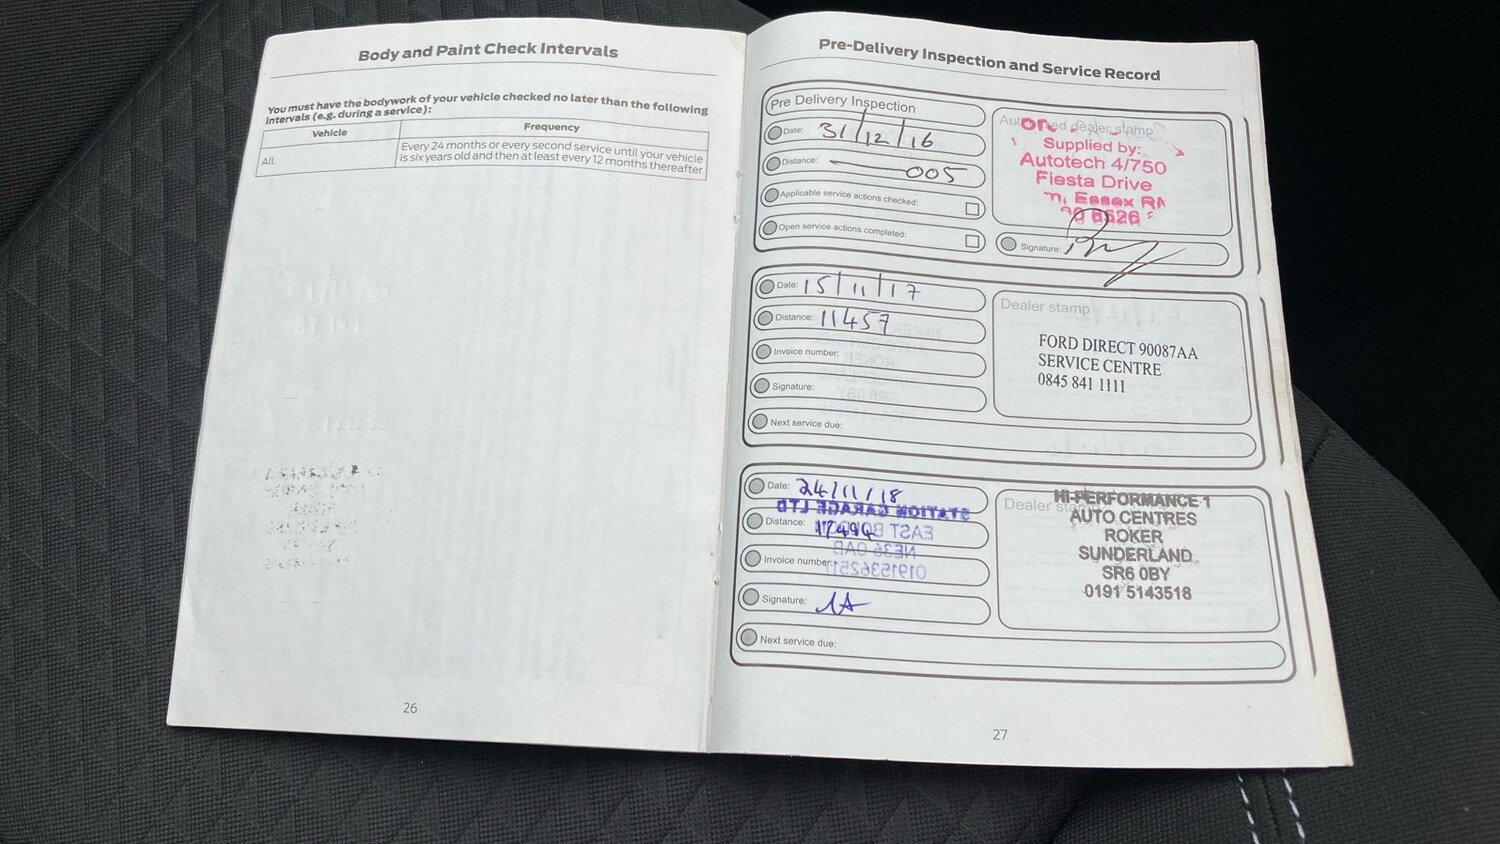 Body and Paint Check Intervals
You must have the bodywork of your vehicle checked no later than the following
intervals (e.g. during a service):
Vehicle
Frequency
All
Every 24 months or every second service until your vehicle
is six years old and then at least every 12 months thereafter
26
Pre-Delivery Inspection and Service Record
Pre Delivery Inspection
Date: 31/12/16
Distance: 005
Applicable service actions checked:
Open service actions completed:
dealer stamp
Supplied by:
Autotech 4/750
Fiesta Drive
Essex RM
Signature:
Date: 15/11/17
Distance: 11457
Invoice number:
Signature:
Next service due:
Dealer stamp
FORD DIRECT 90087AA
SERVICE CENTRE
0845 841 1111
Date: 24/11/18
STATION GARAGE LTD
Distance: 17494
EAST BOLDON
Invoice number:
NE36 0AD
01915362517
Signature: JA
Next service due:
Dealer stamp
HI-PERFORMANCE 1
AUTO CENTRES
ROKER
SUNDERLAND
SR6 0BY
0191 5143518
27